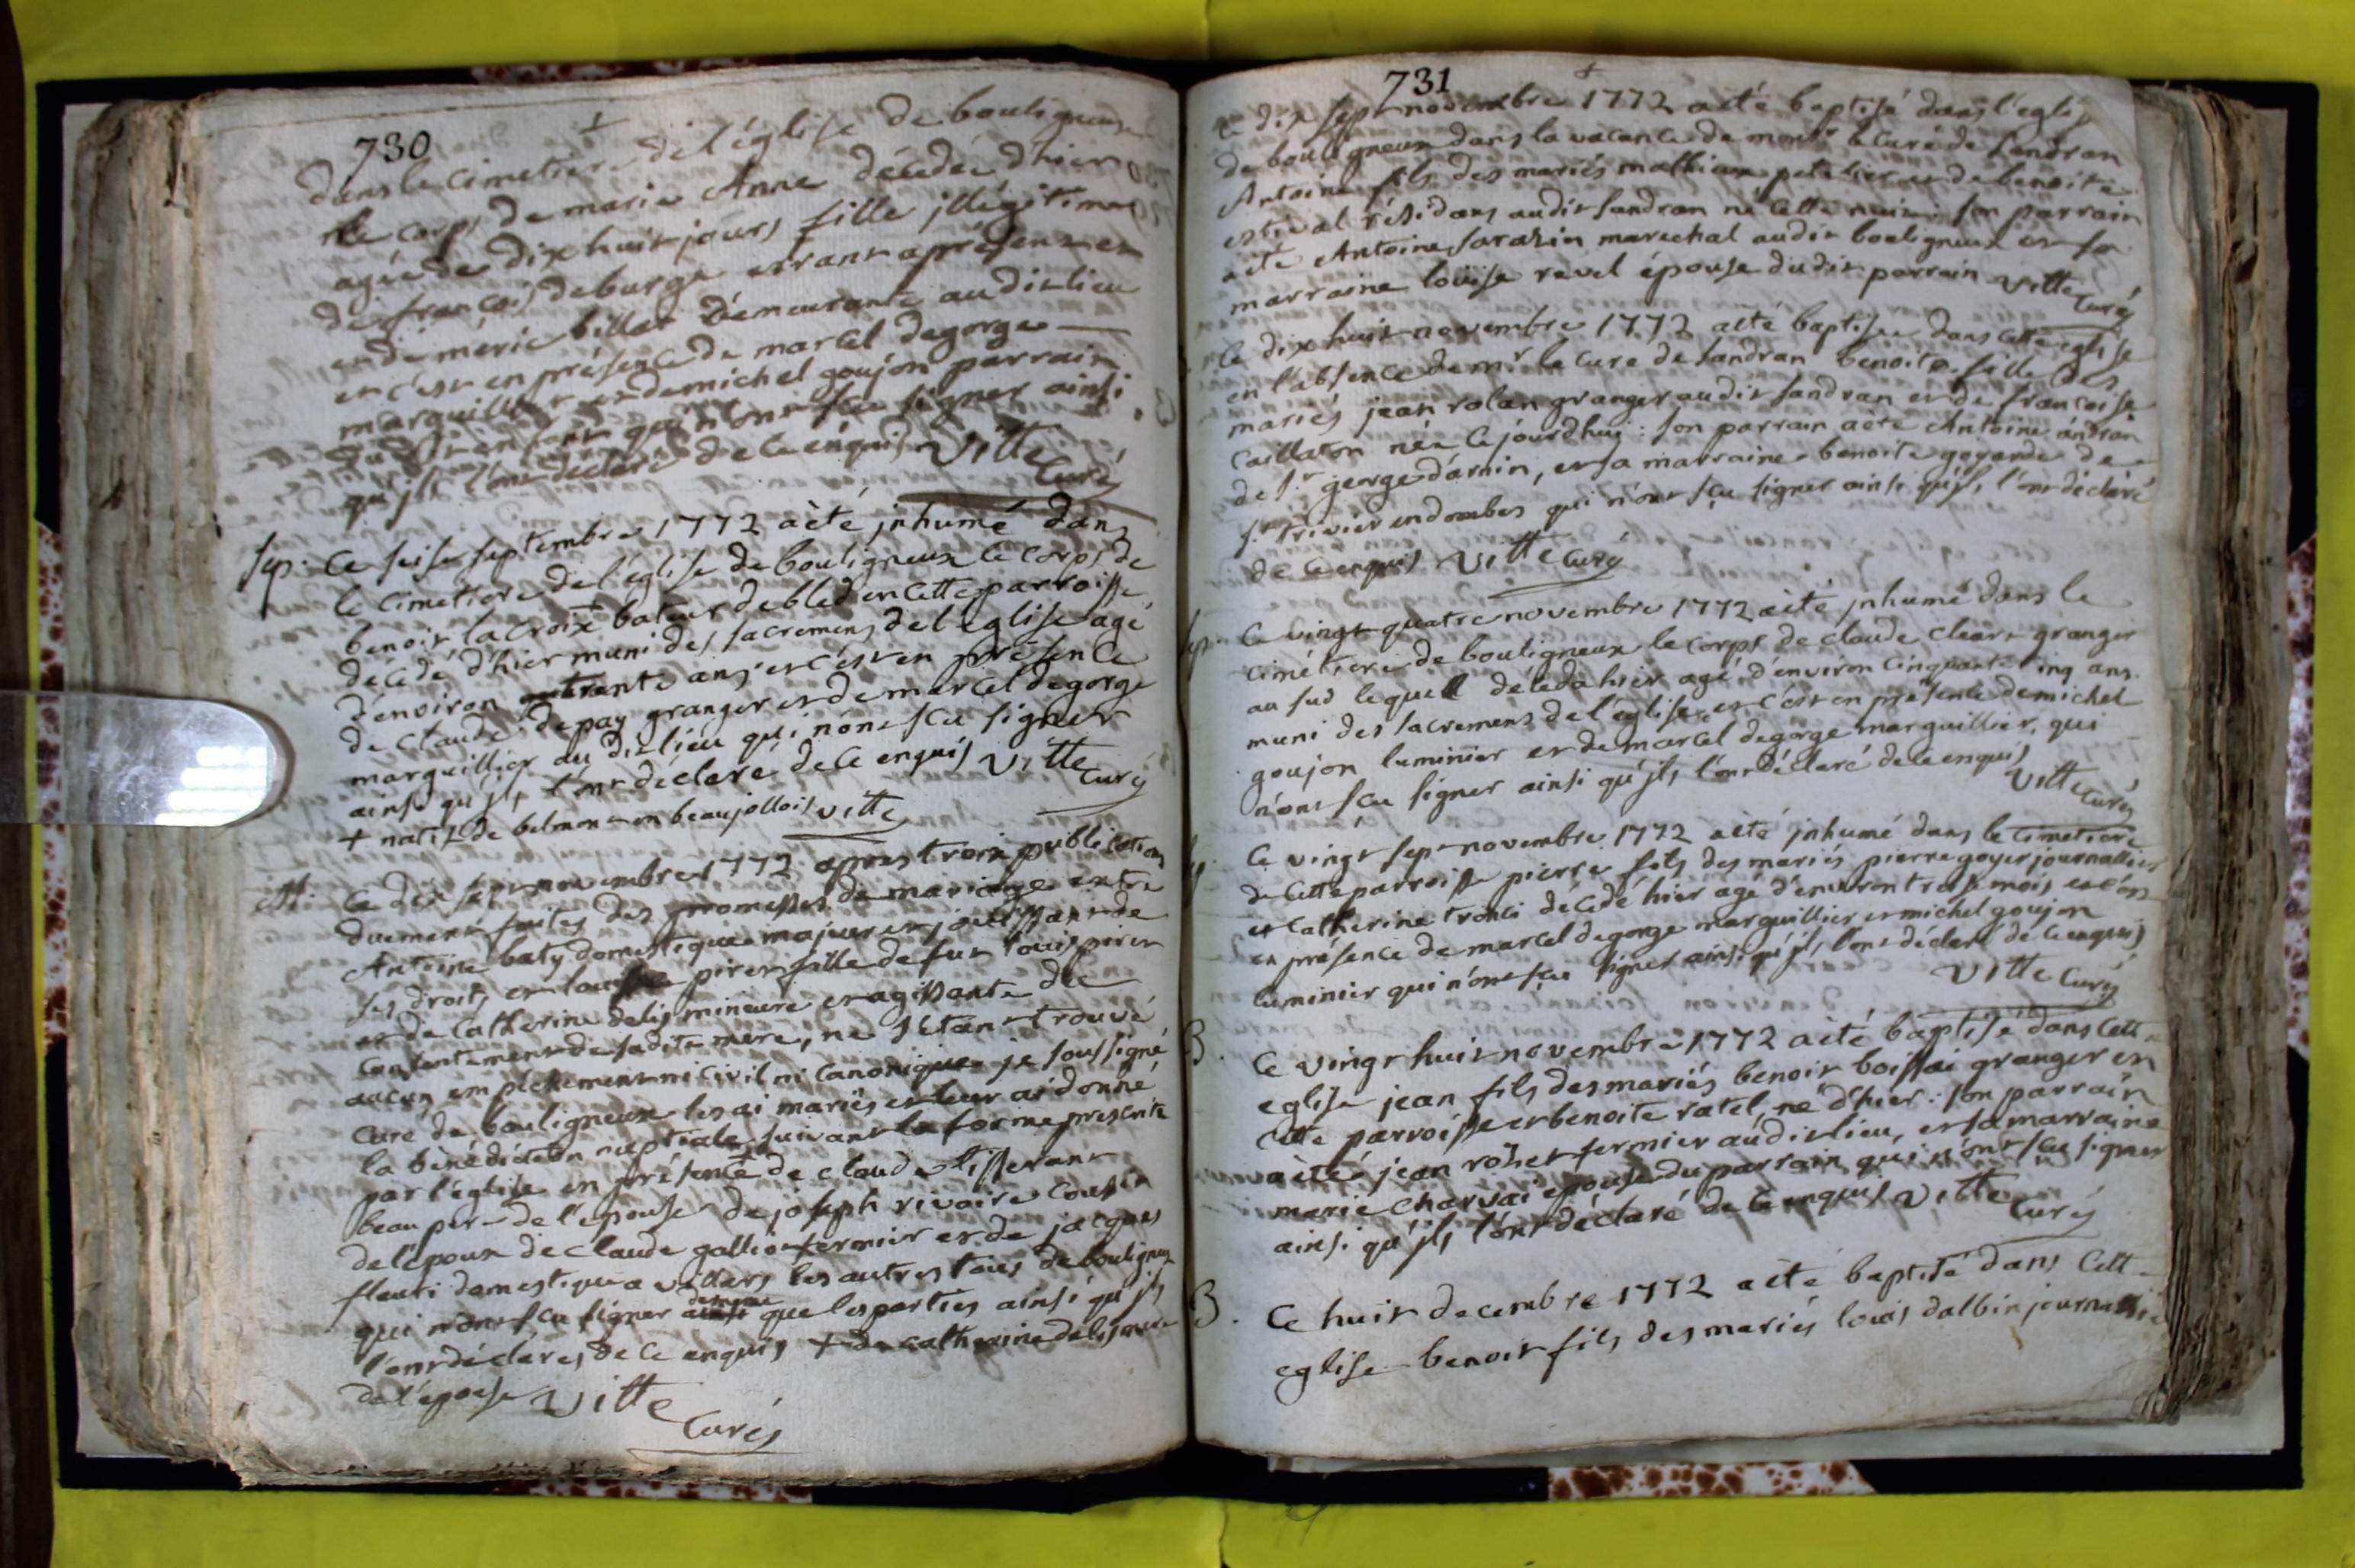 730
dans le cimetiere de l'église de bouligneux
le corps de marie Anne décédée d'hier
agée de dix huit jours fille jllégitime
de françois deburge errant aprésent et
et de marie billet demeurante audit lieu
et c'est en présence de marcel degorge
marguillier et de michel goujon parrain
dudit enfant qui n'ont sçu signer ainsi
qu'jls l'ont déclaré de ce enquis Vitte
Curé
sep. Ce seise septembre 1772 a èté jnhumé dans
le Cimetiere de l'église de bouligneux le corps de
benoit lacroix + bateur de bled en cette parroisse
décédé d'hier muni des sacremens de l'église agé
d'environ trente ans et c'est en présence
de claude depay granger et de marcel degorge
marguillier du dit lieu qui n'ont sçu signer
ainsi qu'jls l'ont déclaré de ce enquis Vitte
Curé
+ natif de belmont en beaujollois Vitte
M. Ce dix sept novembre 1772 apres trois publications
duement faites des promesses de mariage entre
Antoine baty domestique majeur et jouissant de
ses droits et louise piron fille de fut louis piron
et de Catherine delis mineure et agissante du
Consentement de sadite mere, ne s'étant trouvé
aucun empechement ni Civil ni Canonique je soussigné
Curé de bouligneux les ai mariés et leur ai donné
la bénédiction nuptiale suivant la forme prescrite
par l'église en présence + de claude lifferant
beau pere de l'épouse de joseph rivoire Cousin
de l'epoux de Claude gallion fermier et de jacques
fleuri domestique a villars les autres tous de bouligneux
qui n'ont sçu signer de meme que les parties ainsi qu'jls
l'ont déclarés de ce enquis + de catherine delis mere
de l'épouse Vitte
Curé
731
Ce dix sept novembre 1772 a èté baptisé dans l'eglise
de bouligneux dans la vacance de monsr le Curé de sandran
Antoine fils des mariés mathieu peletier et de benoite
estival résidans audit sandran né cette nuit: son parrain
a èté Antoine sarasin marechal audit bouligneux et sa
marraine louise revel épouse dudit parrain Vitte
Curé
Ce dix huit novembre 1772 a èté baptisée dans cette eglise
en l'absence de mr le Cure de sandran benoite fille des
mariés jean rolan granger audit sandran et de francoise
Caillaton née Ce jourdhui: son parrain a èté Antoine andran
de st george darnin, et sa marraine benoite goyarde de
st trivier en dombes qui n'ont sçu signer ainsi qu'jls l'ont déclaré
de ce enquis Vitte Curé
sep. Ce vingt quatre novembre 1772 a èté jnhumé dans le
cimétiere de bouligneux le corps de claude cleart granger
au sud lequel décéda hier agé d'environ cinquante cinq ans
muni des sacremens de l'église et c'est en présence de michel
goujon luminier et de marcel degorge marguillier, qui
n'ont sçu signer ainsi qu'jls l'ont déclaré de ce enquis
Vitte Curé
Ce vingt sept novembre 1772 a èté jnhumé dans le Cimetiere
de Cette parroisse pierre fils des mariés pierre goyer journallier
et Catherine tronci décédé hier agé d'environ trois mois et c'est
en présence de marcel degorge marguillier et michel goujon
luminier qui n'ont sçu signer ainsi qu'jls l'ont déclaré de ce enquis
Vitte Curé
B. Ce vingt huit novembre 1772 a èté baptisé dans Cette
eglise jean fils des mariés benoit boissai granger en
cette parroisse et benoite ratel, né d'hier: son parrain
a èté jean rohet fermier audit lieu, et sa marraine
marie Charvai epouse du parrain qui n'ont sçu signer
ainsi qu'jls l'ont déclaré de ce enquis Vitte
Curé
B. Ce huit decembre 1772 a èté baptisé dans Cette
eglise benoit fils des mariés louis dalbin journallié